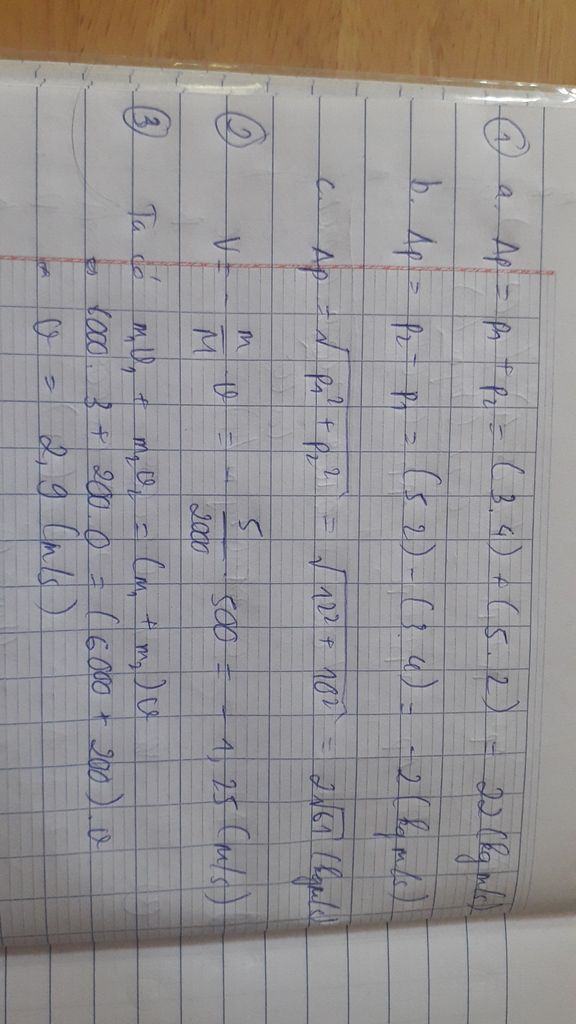 ① a. Δp = p₁ + p₂ = (3.4) + (5.2) = 22 (kg m/s)
b. Δp = p₂ - p₁ = (5.2) - (3.4) = -2 (kg m/s)
c. Δp = √(p₁² + p₂²) = √(12² + 10²) = 2√61 (kg m/s)
② V = - m/M v = - 5/2000 . 500 = -1,25 (m/s)
③ Ta có m₁v₁ + m₂v₂ = (m₁ + m₂)v
⇔ 6000. 3 + 200.0 = (6000 + 200).v
⇔ v = 2,9 (m/s)